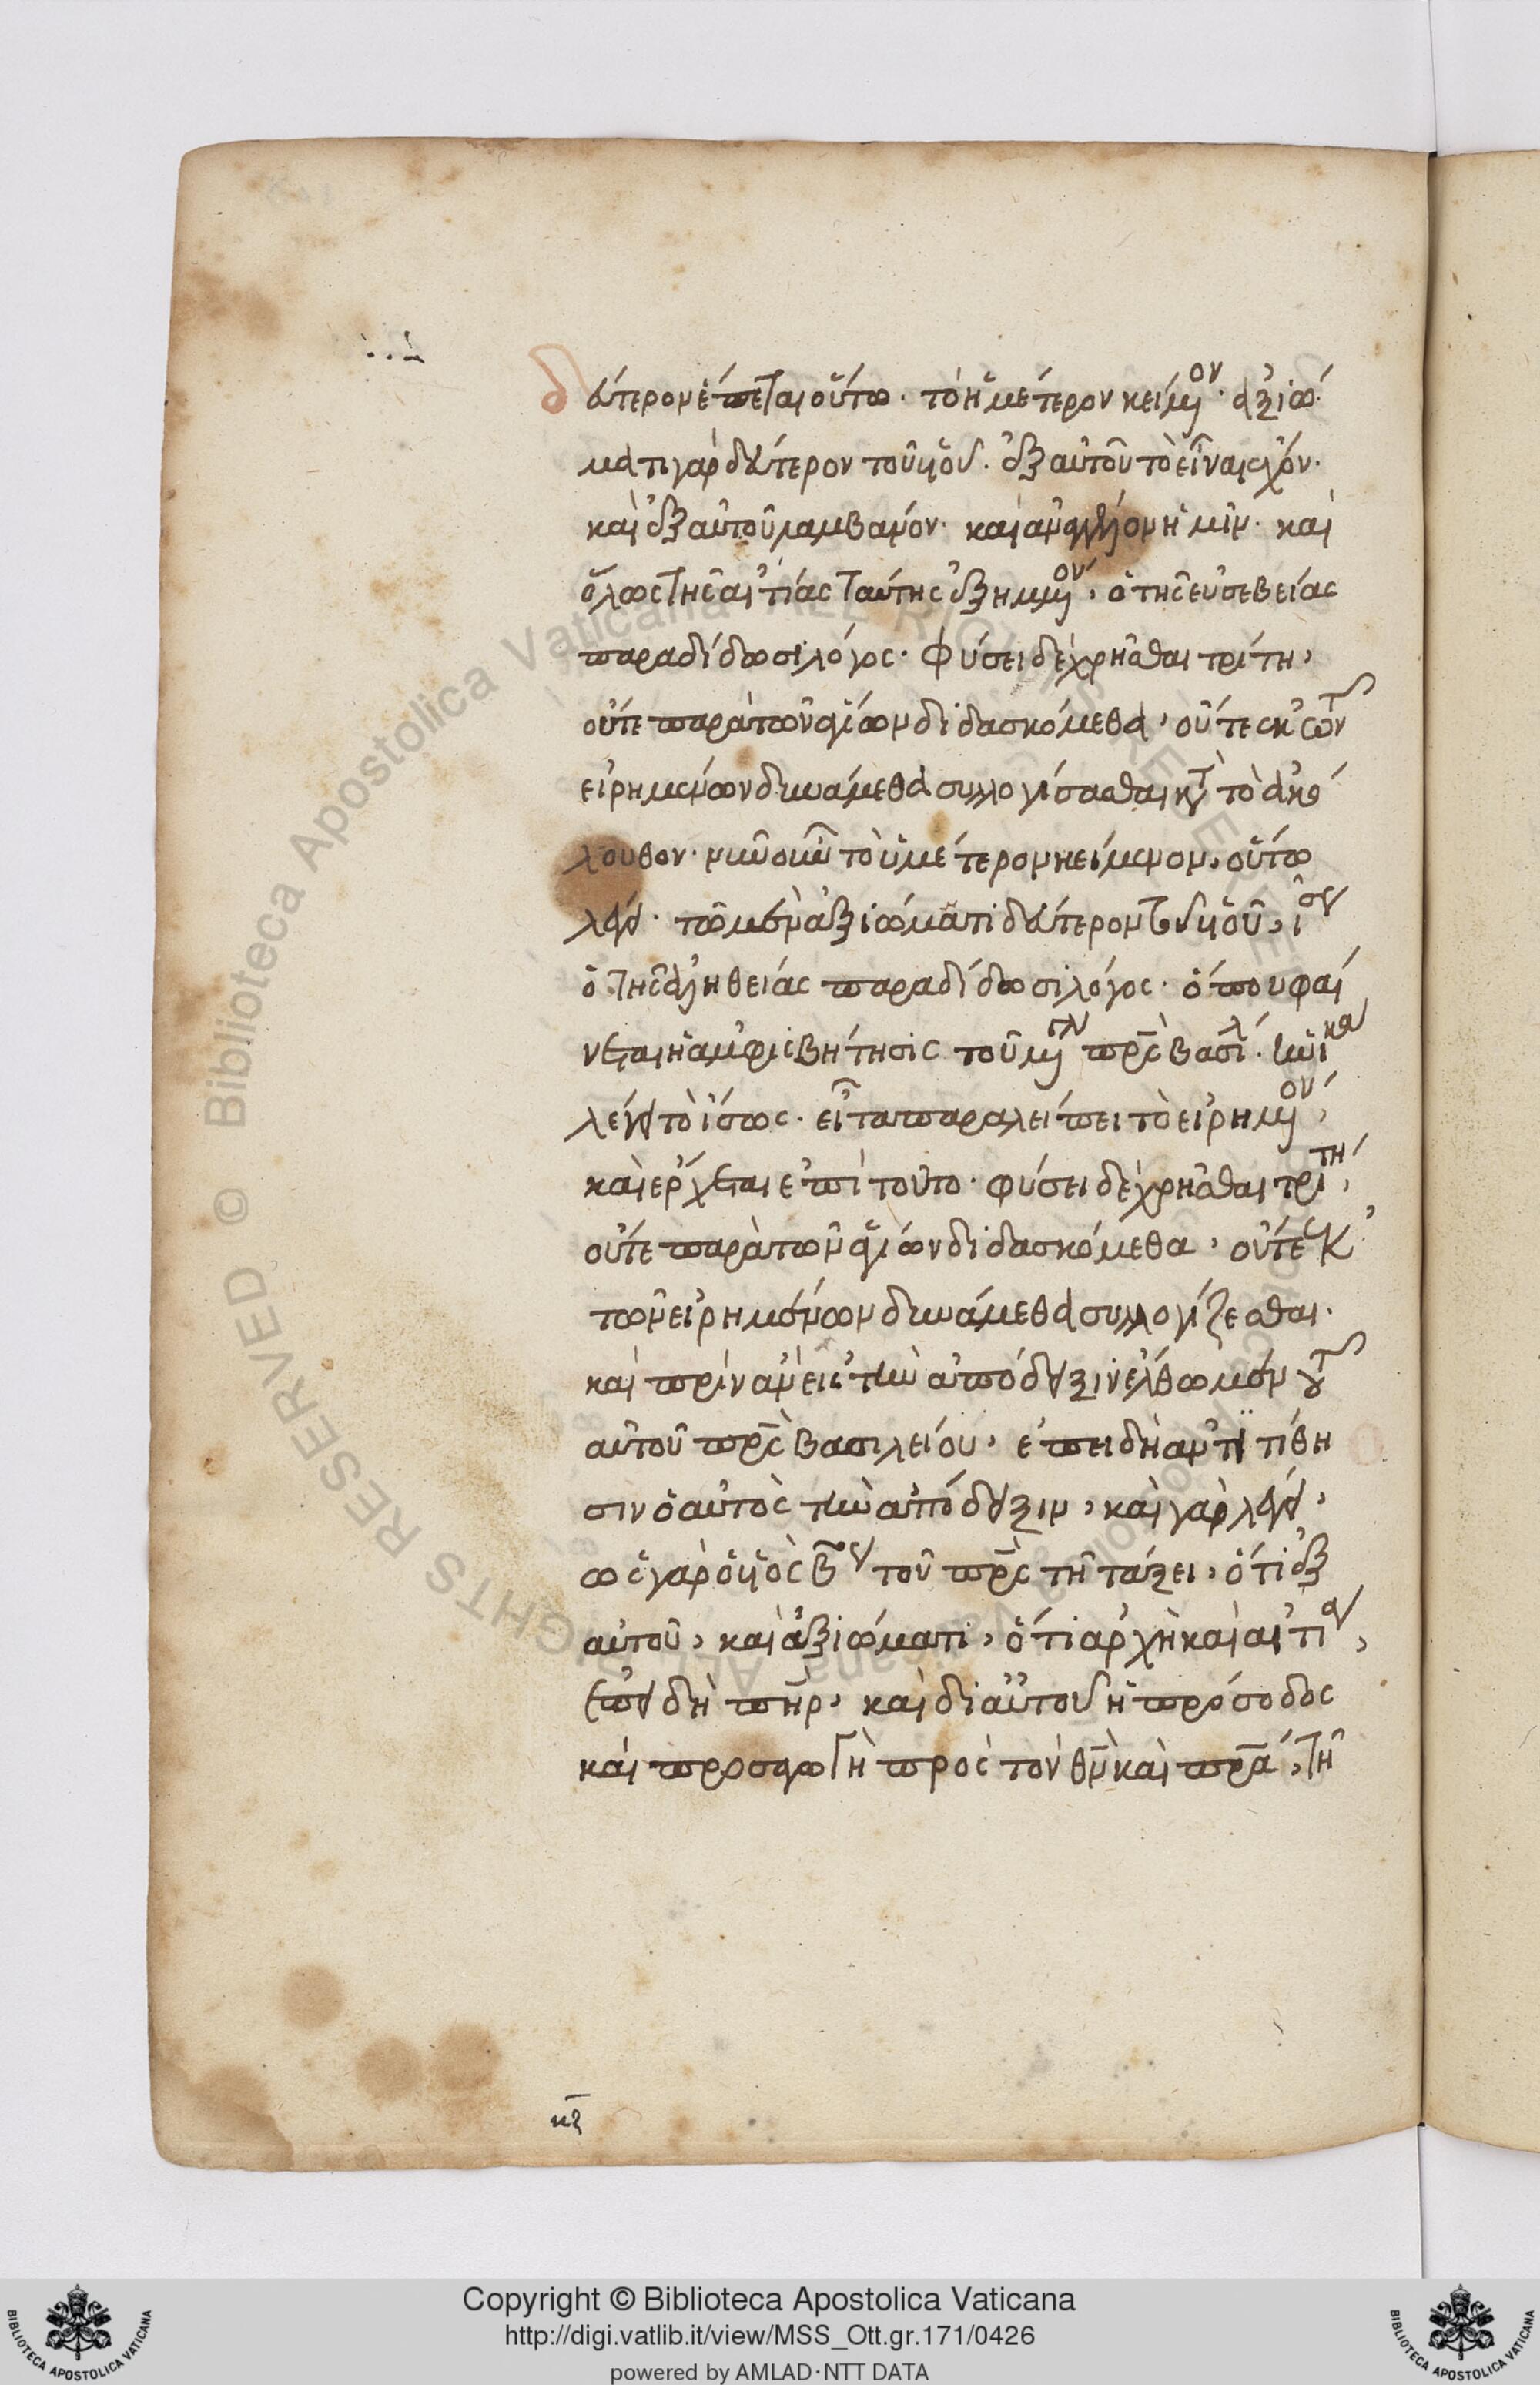 δεύτερον ἕπεται οὕτω. τὸ ἡμέτερον κείμον. ἀξιώ
ματι γὰρ δεύτερον τοῦ υἱοῦ. ἐξ αὐτοῦ τὸ εἶναι ἔχον.
καὶ ἐξ αὐτοῦ λαμβάνον. καὶ ἀναγγέλλον ἡμῖν. καὶ
ὅλως τῆς αἰτίας ταύτης ἐξημμον, ὁ τῆς εὐσεβείας
παραδίδωσι λόγος. φύσει δὲ χρῆσθαι τρίτη,
οὔτε παρὰ τῶν ἁγίων διδασκόμεθα, οὔτε ἐκ τῶν
εἰρημένων δυνάμεθα συλλογίσασθαι κατὰ τὸ ἀκό
λουθον. νῦν οὖν τὸ ὑμέτερον κείμενον, οὕτω
λέγει. τῷ μὲν ἀξιώματι δεύτερον τοῦ υἱοῦ, ἴσως
ὁ τῆς ἀληθείας παραδίδωσι λόγος. ὅπου φαί
νεται ἡ ἀμφισβήτησις τοῦ μεγάλου πρς βασιλ.
λέγει τὸ ἴσως. εἶτα παραλείπει τὸ εἰρημον,
καὶ ἔρχεται ἐπὶ τοῦτο. φύσει δὲ χρῆσθαι τρίτη,
οὔτε παρὰ τῶν ἁγίων διδασκόμεθα, οὔτε ἐκ
τῶν εἰρημένων δυνάμεθα συλλογίζεσθαι.
καὶ πρὶν ἂν εἰς τὴν ἀπόδειξιν ἔλθωμεν τοῦ
αὐτοῦ πρς βασιλείου, ἐπειδὴ ἀντιτίθη
σιν ὁ αὐτὸς τὴν ἀπόδειξιν, καὶ γὰρ λέγει,
ὡς γὰρ ὁ υἱὸς βος τοῦ πρς τῇ τάξει, ὅτι ἐξ
αὐτοῦ, καὶ ἀξιώματι, ὅτι ἀρχὴ καὶ αἰτία,
ἐπεὶ δὴ πηρ, καὶ δι αὐτοῦ ἡ πρόσοδος
καὶ προσαγωγὴ πρὸς τὸν θν καὶ πρα, τῇ
κζ
Copyright © Biblioteca Apostolica Vaticana
http://digi.vatlib.it/view/MSS_Ott.gr.171/0426
powered by AMLAD·NTT DATA